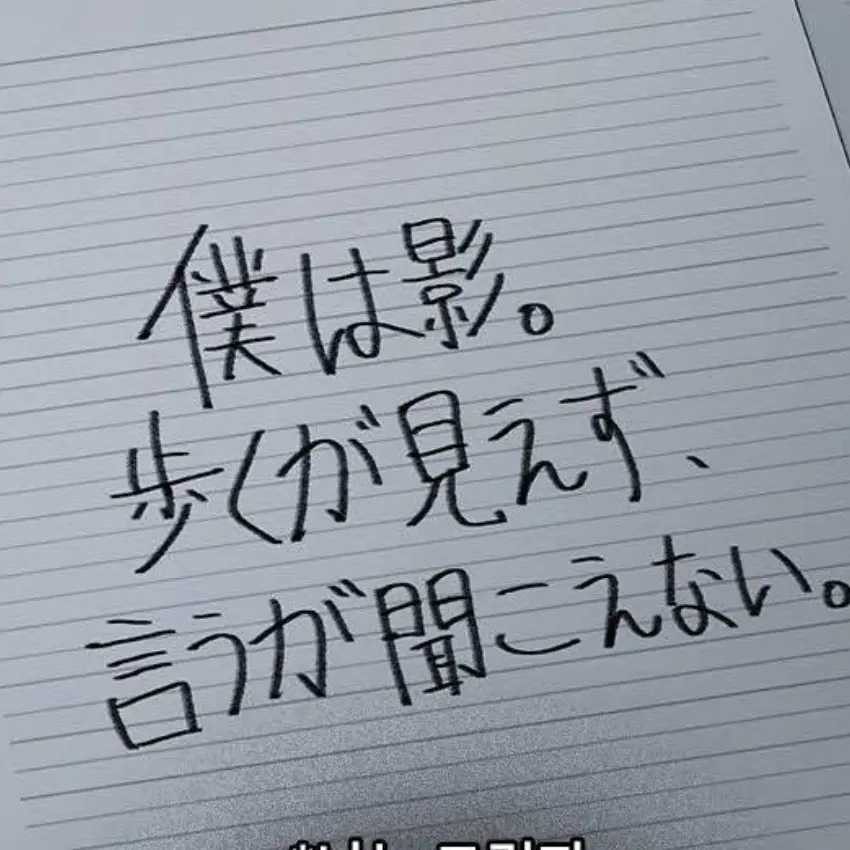 僕は影。
歩くが見えず、
言うが聞こえない。